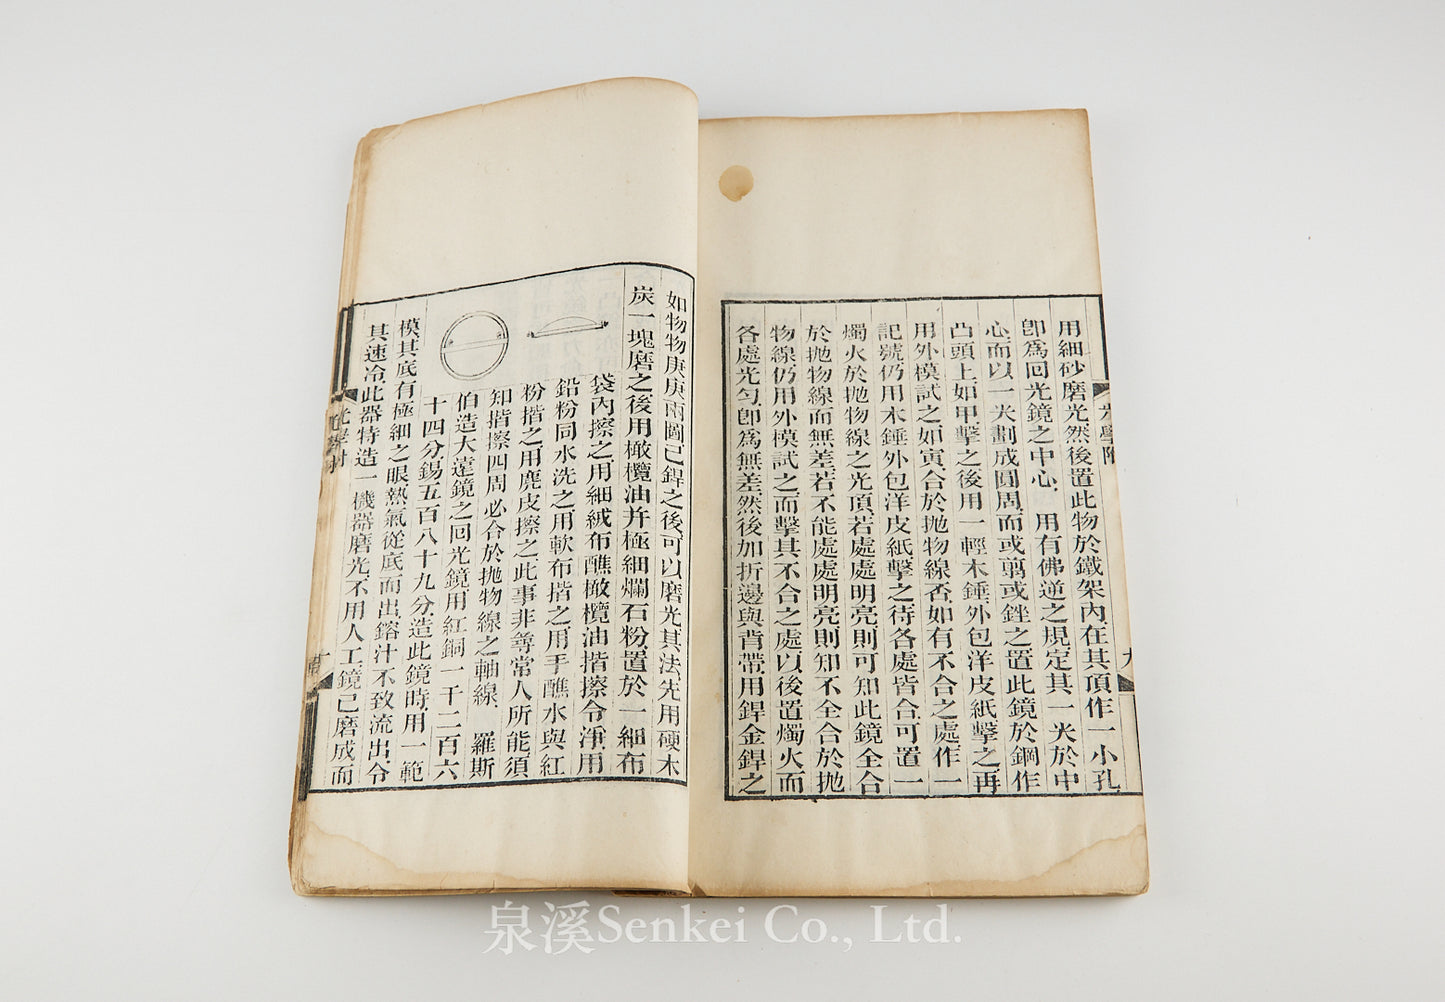 用細砂磨光然後置此物於鐵架內在其頂作一小孔
卽爲回光鏡之中心 用有佛逆之規定其一㕚於中
心而以一㕚劃成圓周而或剪或銼之置此鏡於鋼作
凸頭上如甲擊之後用一輕木錘外包洋皮紙擊之再
用外模試之如寅合於拋物線否如有不合之處作一
記號仍用木錘外包洋皮紙擊之待各處皆合可置一
燭火於拋物線之光頂若處處明亮則可知此鏡全合
於拋物線而無差若不能處處明亮則知不全合於拋
物線仍用外模試之而擊其不合之處以後置燭火而
各處光勻卽爲無差然後加折邊與背帶用銲金銲之
光學附
九
如物物庚庚兩圖已銲之後可以磨光其法先用硬木
炭一塊磨之後用橄欖油幷極細爛石粉置於一細布
袋內擦之用細絨布醮橄欖油揩擦令淨用
鉛粉同水洗之用軟布揩之用手醮水與紅
粉揩之用麂皮擦之此事非尋常人所能須
知揩擦四周必合於拋物線之軸線 羅斯
伯造大遠鏡之回光鏡用紅銅一千二百六
十四分錫五百八十九分造此鏡時用一範
模其底有極細之眼熱氣從底而出鎔汁不致流出令
其速冷此器特造一機器磨光不用人工鏡已磨成而
光學附
泉溪Senkei Co., Ltd.